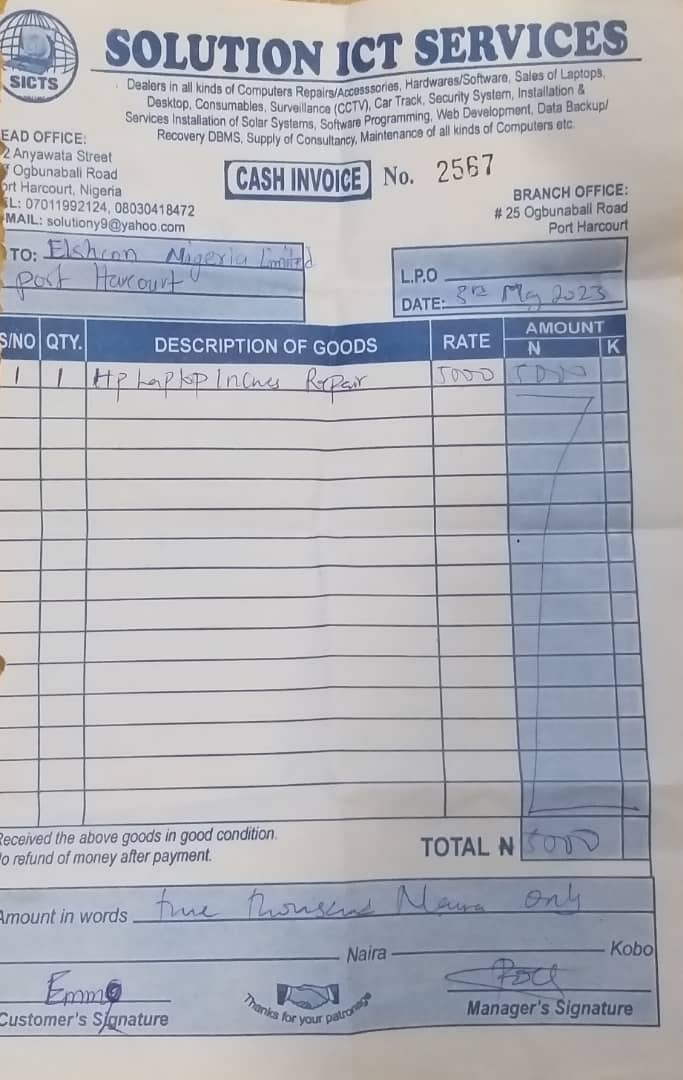 SICTS
SOLUTION ICT SERVICES
Dealers in all kinds of Computers Repairs/Accesssories, Hardwares/Software, Sales of Laptops,
Desktop, Consumables, Surveillance (CCTV), Car Track, Security System, Installation &
Services Installation of Solar Systems, Software Programming, Web Development, Data Backup/
Recovery DBMS, Supply of Consultancy, Maintenance of all kinds of Computers etc.
EAD OFFICE:
2 Anyawata Street
Ogbunabali Road
ort Harcourt, Nigeria
EL: 07011992124, 08030418472
MAIL: solutiony9@yahoo.com
CASH INVOICE No. 2567
BRANCH OFFICE:
# 25 Ogbunabali Road
Port Harcourt
TO: Elshcon Nigeria Limited
port Harcourt
L.P.O
DATE: 3rd May 2023
S/NO QTY. DESCRIPTION OF GOODS RATE AMOUNT
N K
1 1 Hp Laptop Repair 5000 5000
Received the above goods in good condition.
No refund of money after payment.
TOTAL ₦ 5000
Amount in words five thousand Naira only
Naira Kobo
Emma
Customer's Signature
Thanks for your patronage
Manager's Signature